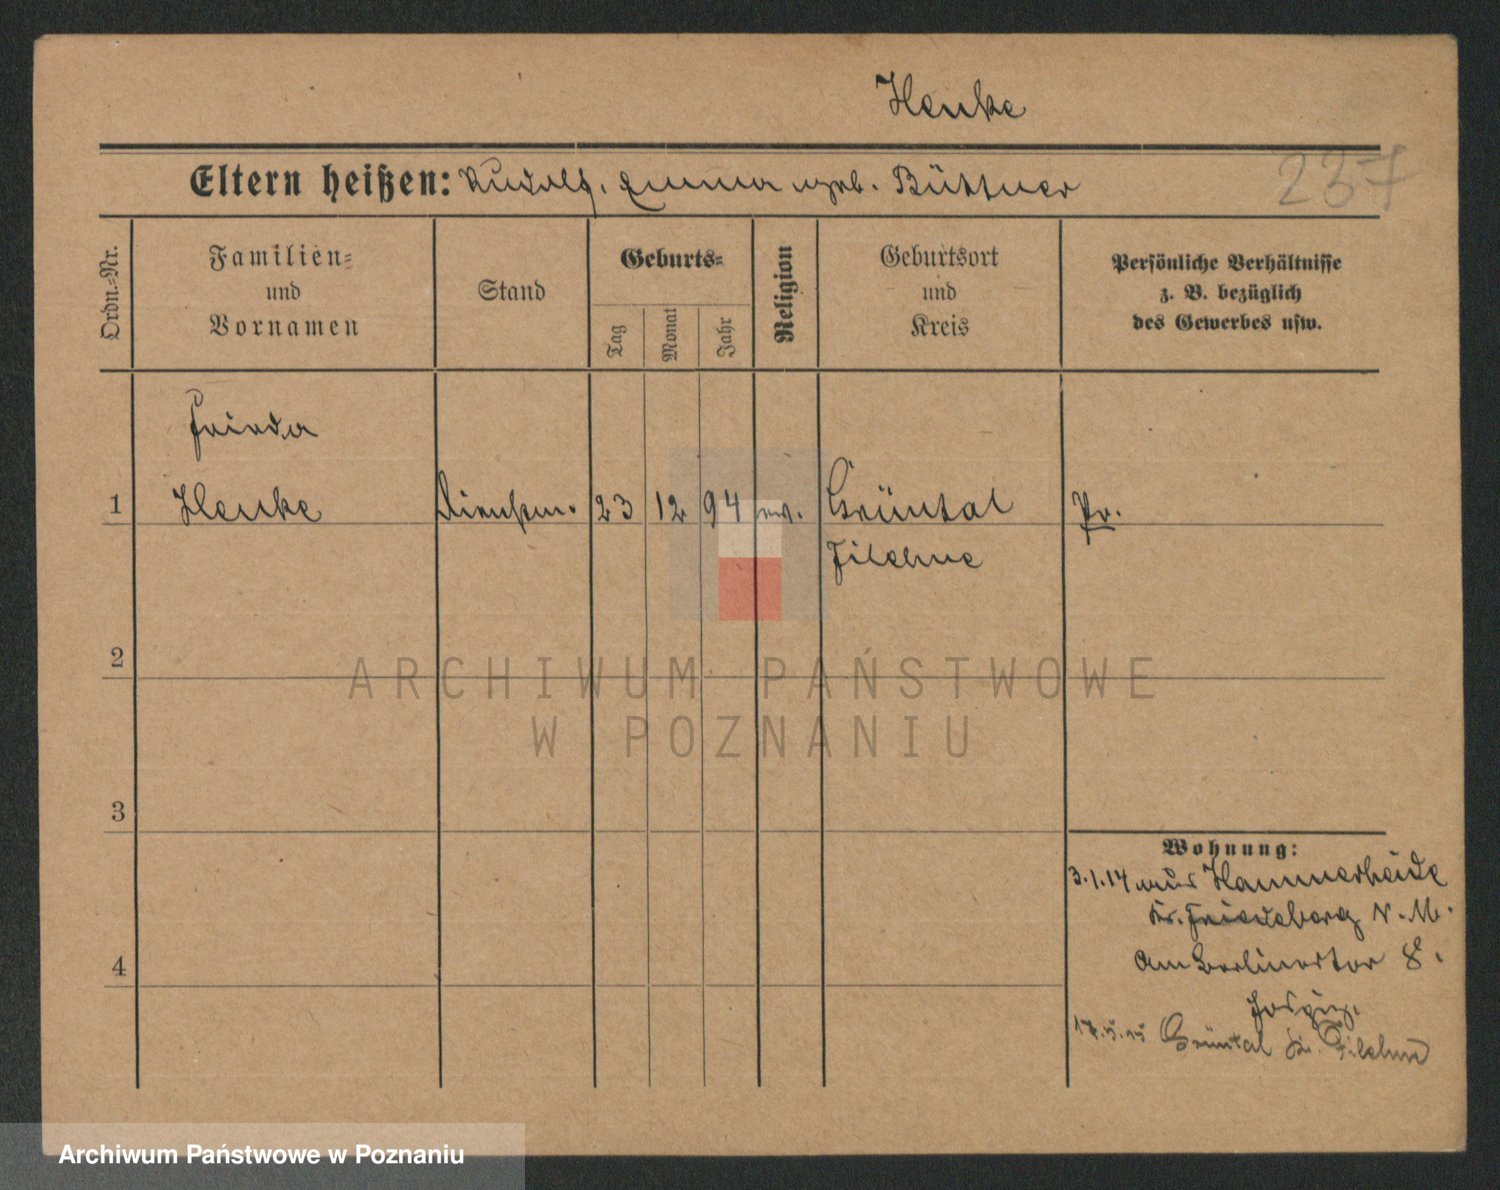 Henke
Eltern heißen: Rudolf. Emma geb. Büttner
237
Ordn.-Nr.
Familien-
und
Vornamen
Stand
Geburts-
Tag
Monat
Jahr
Religion
Geburtsort
und
Kreis
Persönliche Verhältnisse
z. B. bezüglich
des Gewerbes usw.
Frieda
1 Henke Dienstm. 23 12 94 ev. Grüntal Pr.
Filehne
2
ARCHIWUM PAŃSTWOWE
W POZNANIU
3
Wohnung:
3.1.14 aus Hammerheide
Kr. Friedeberg N.-M.
4
Am Berlinertor 8.
17.5.15 Grüntal Kr. Filehne
Archiwum Państwowe w Poznaniu